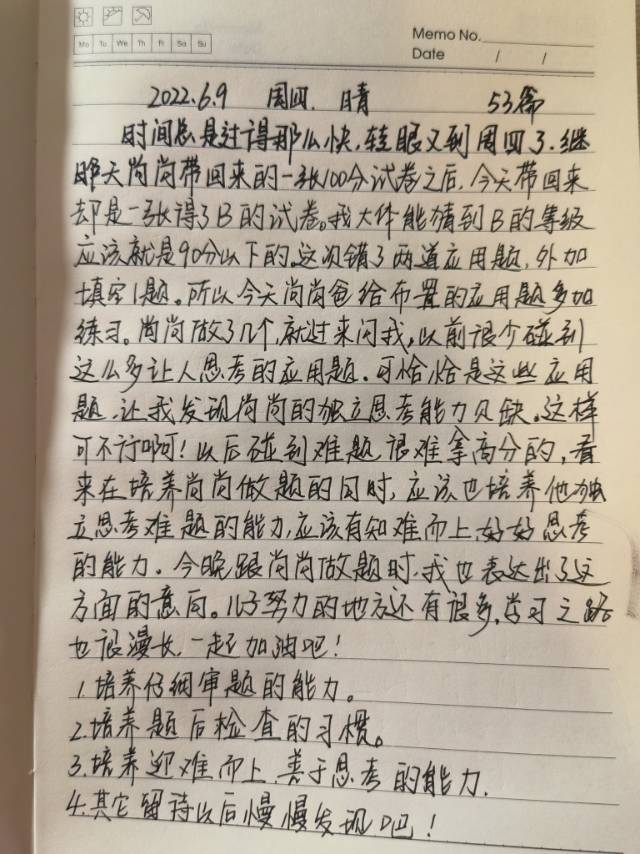 Memo No.
Mo Tu We Th Fr Sa Su
Date / /
2022.6.9 周四. 晴 53篇
时间总是过得那么快,转眼又到周四了.继
昨天尚尚带回来的一张100分试卷之后,今天带回来
却是一张得了B的试卷。我大体能猜到B的等级
应该就是90分以下的。这次错了两道应用题,外加
填空1题。所以今天尚尚爸给布置的应用题多加
练习。尚尚做了几个,就过来问我,以前很少碰到
这么多让人思考的应用题.可恰恰是这些应用
题,让我发现尚尚的独立思考能力欠缺.这样
可不行啊!以后碰到难题,很难拿高分的,看
来在培养尚尚做题的同时,应该也培养他独
立思考难题的能力,应该有知难而上,好好思考
的能力.今晚跟尚尚做题时,我也表达出了这
方面的意向。儿子努力的地方还有很多,学习之路
也很漫长,一起加油吧!
1.培养仔细审题的能力。
2.培养题后检查的习惯。
3.培养迎难而上,善于思考的能力.
4.其它留待以后慢慢发现吧!